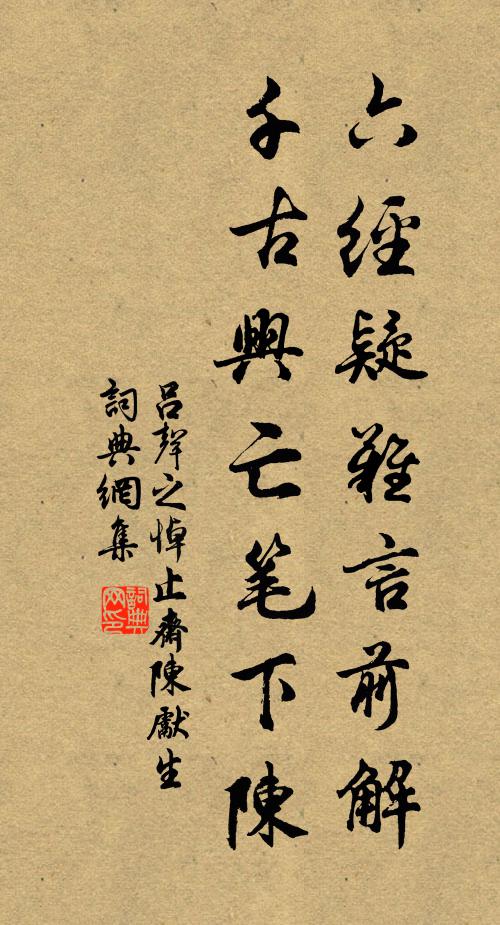 六經疑難言前解
千古興亡笔下陳
呂聲之悼止齋陳獻生
詞典網集
詞典网印